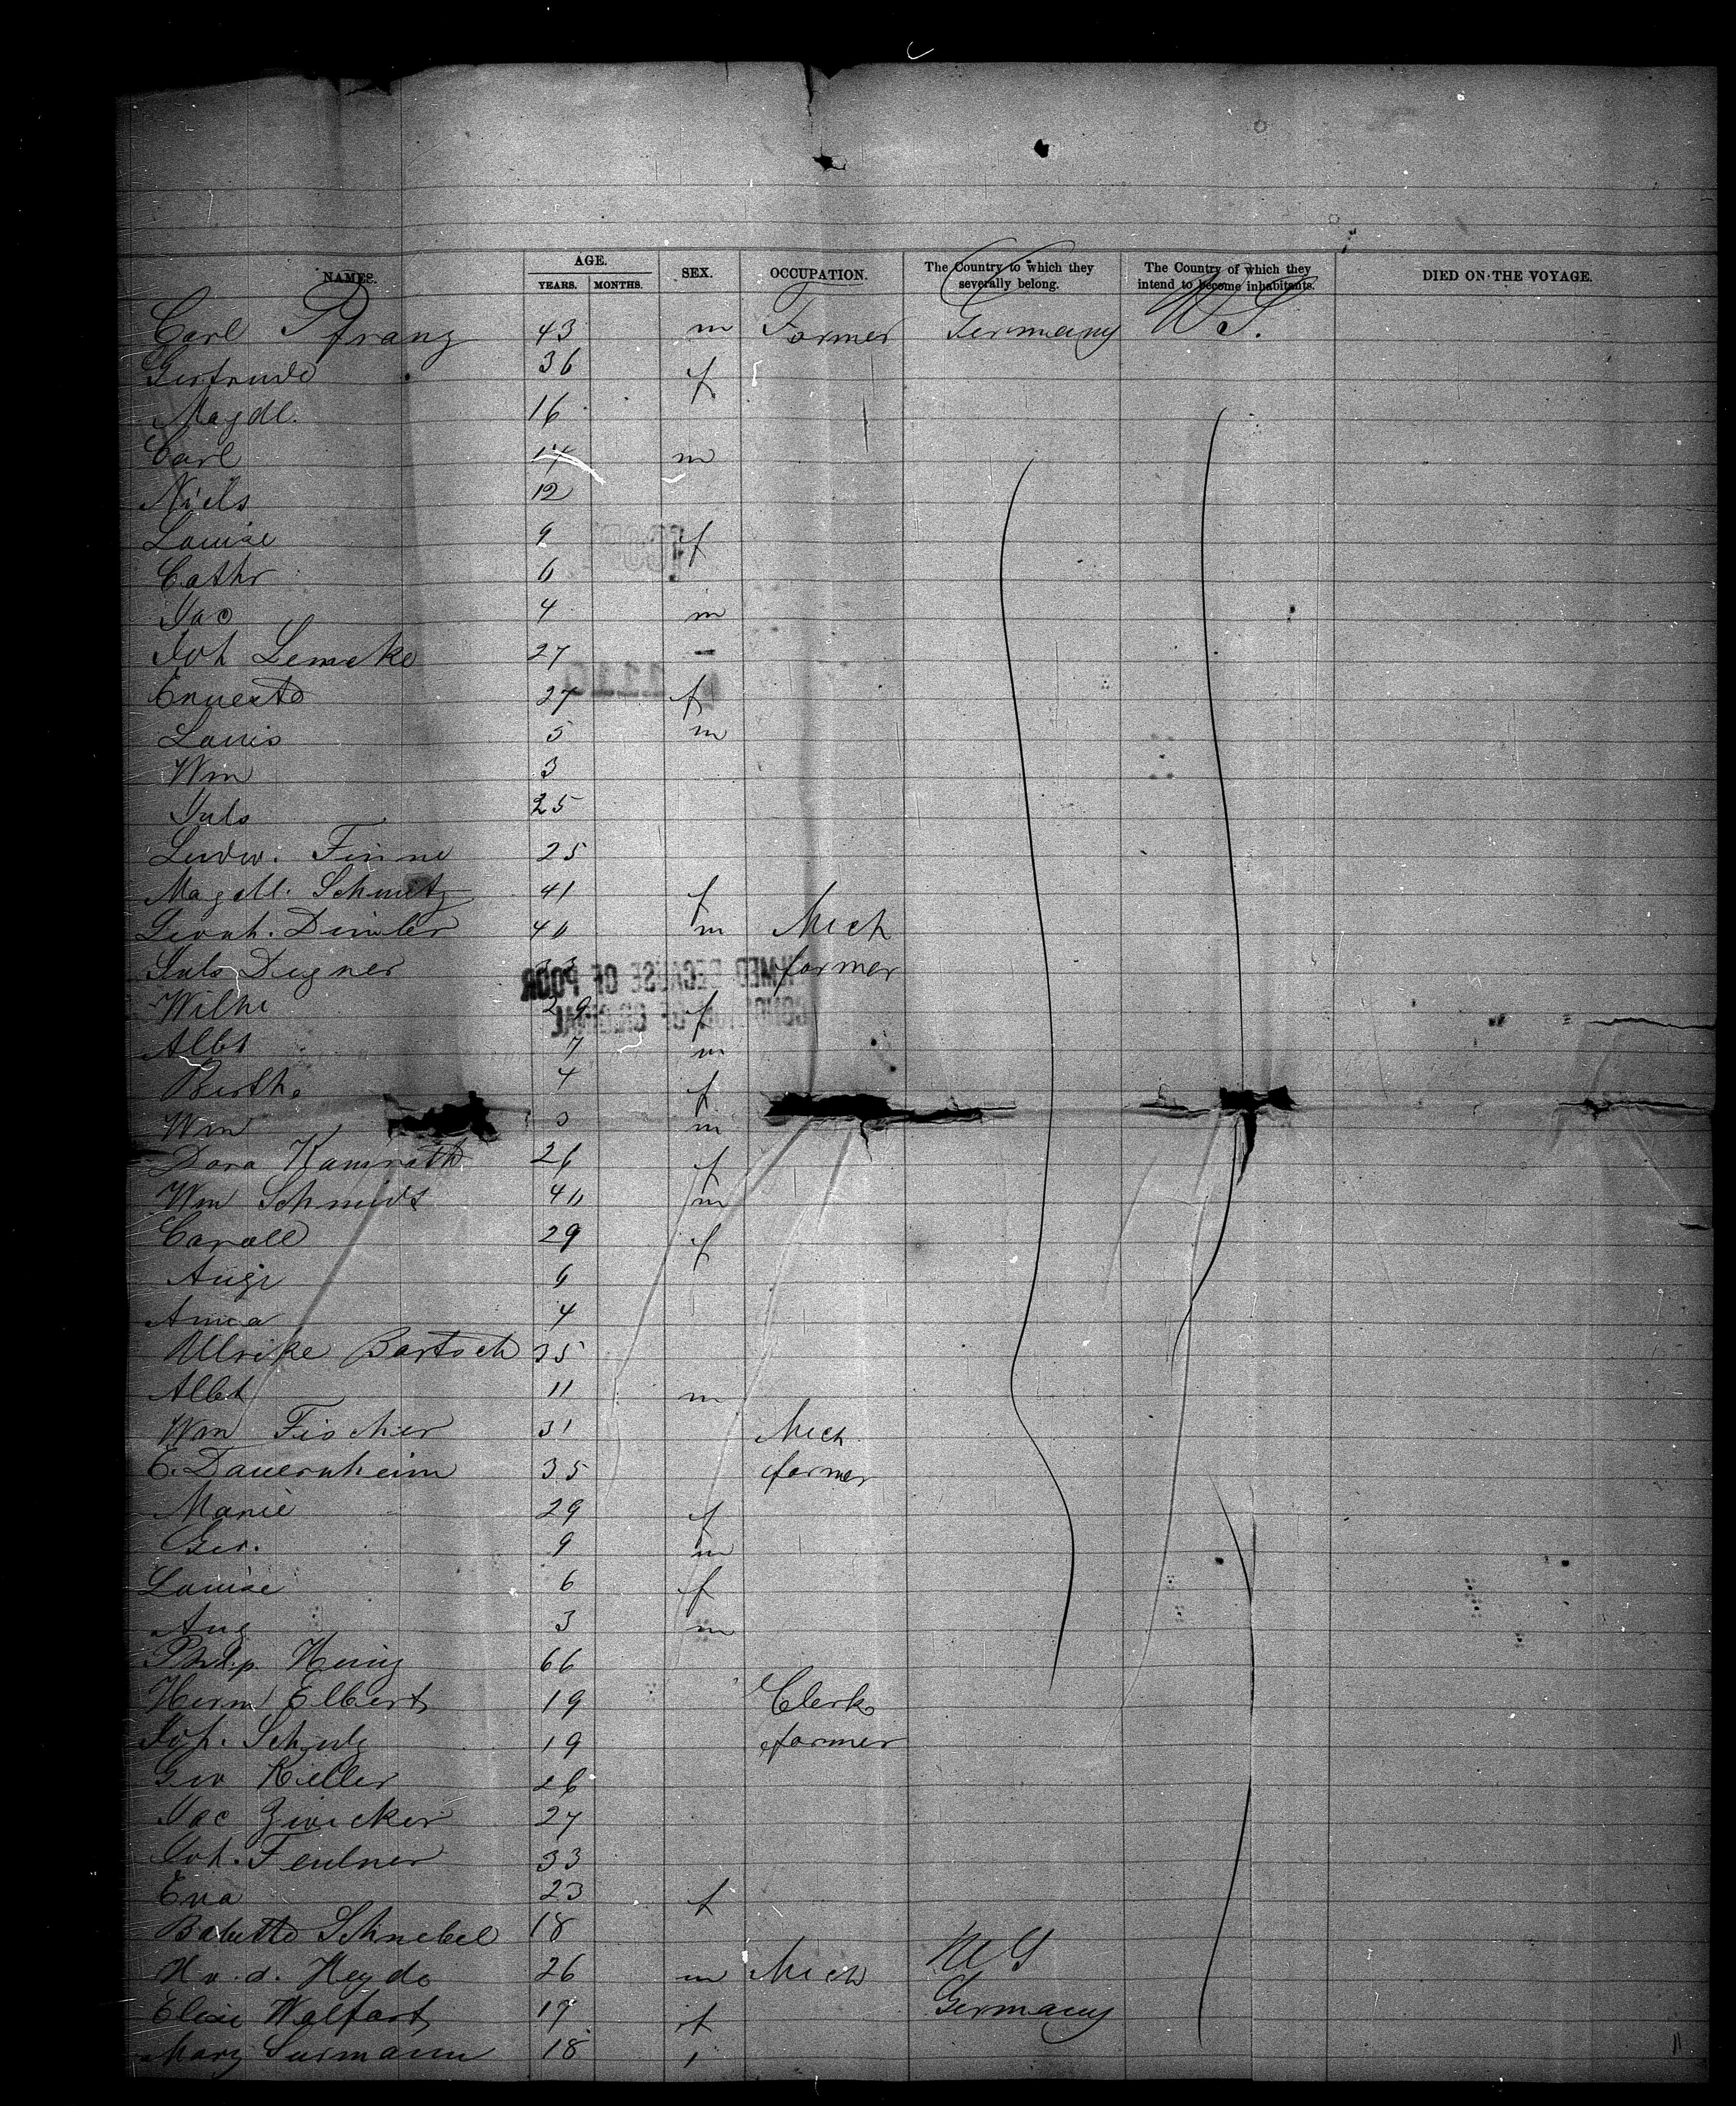 NAMES. AGE. YEARS. MONTHS. SEX. OCCUPATION. The Country to which they severally belong. The Country of which they intend to become inhabitants. DIED ON THE VOYAGE.
Carl Pfranz 43 m Farmer Germany US.
Gertrude 36 f
Magdl. 16
Carl 14 m
Niels 12
Louise 9 f
Cathr 6
Jac 4 m
Joh Lemcke 27
Ernest 27 f
Louis 5 m
Wm 3
Juls 25
Ludw. Finne 25
Magdl. Schmitz 41 f
Leonh. Dimler 40 m Mech
Juls Degner 33 farmer
Wilhe 29 f
Albt 7 m
Berth. 4 f
Wm m
Dora Kamrath 26 f
Wm Schmidt 40 m
Caroll 29 f
Auge 6
Anna 4
Ullrike Bartsch 35
Albt 11 m
Wm Fischer 31 Mech
E. Dauernheim 35 farmer
Marie 29 f
Geo. 9 m
Louise 6 f
Aug 3 m
Philp. 66
Herm Elbert 19 Clerk
Joh. Schulz 19 farmer
Geo Keller 26
Jac Zwicker 27
Joh. Feulner 33
Eva 23 f
Babette Schnebel 18
H v. d. Heyde 26 m Mech US
Elise Walfart 17 f Germany
Mary Surmann 18